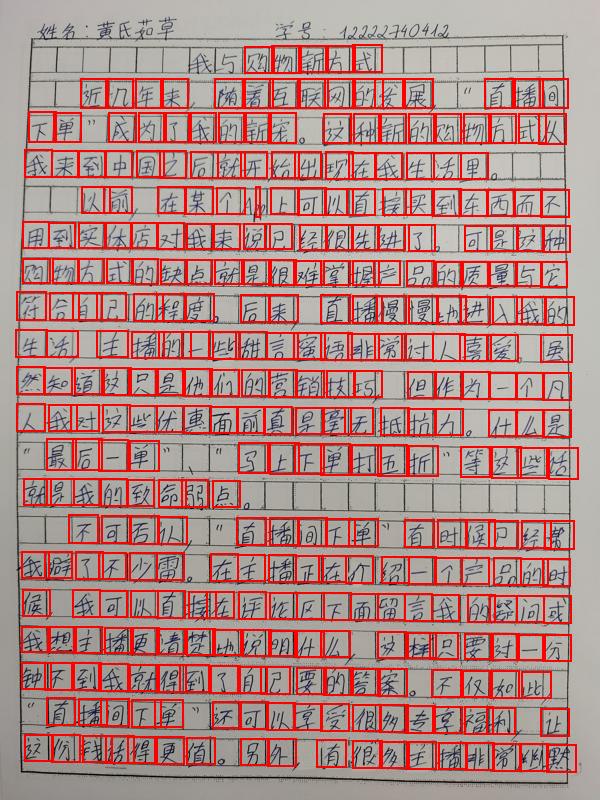 姓名：黄氏茹草 学号：12222740412
我与购物新方式
近几年来，随着互联网的发展，“直播间
下单”成为了我的新宠。这种新的购物方式从
我来到中国之后就开始出现在我生活里。
以前，在某个App上可以直接买到东西而不
用到实体店对我来说已经很先进了。可是这种
购物方式的缺点就是很难掌握产品的质量与它
符合自己的程度。后来，直播慢慢地进入我的
生活，主播的一些甜言蜜语非常讨人喜爱。虽
然知道这只是他们的营销技巧，但作为一个凡
人我对这些优惠面前真是毫无抵抗力。什么是
“最后一单”、“马上下单打五折”等这些话
就是我的致命弱点。
不可否认，“直播间下单”有时候已经帮
我避了不少雷。在主播正在介绍一个产品的时
候，我可以直接在评论区下面留言我的疑问或
我想主播更清楚地说明什么，这样只要过一分
钟不到我就得到了自己要的答案。不仅如此，
“直播间下单”还可以享受很多专享福利，让
这份钱活得更值。另外，有很多主播非常幽默